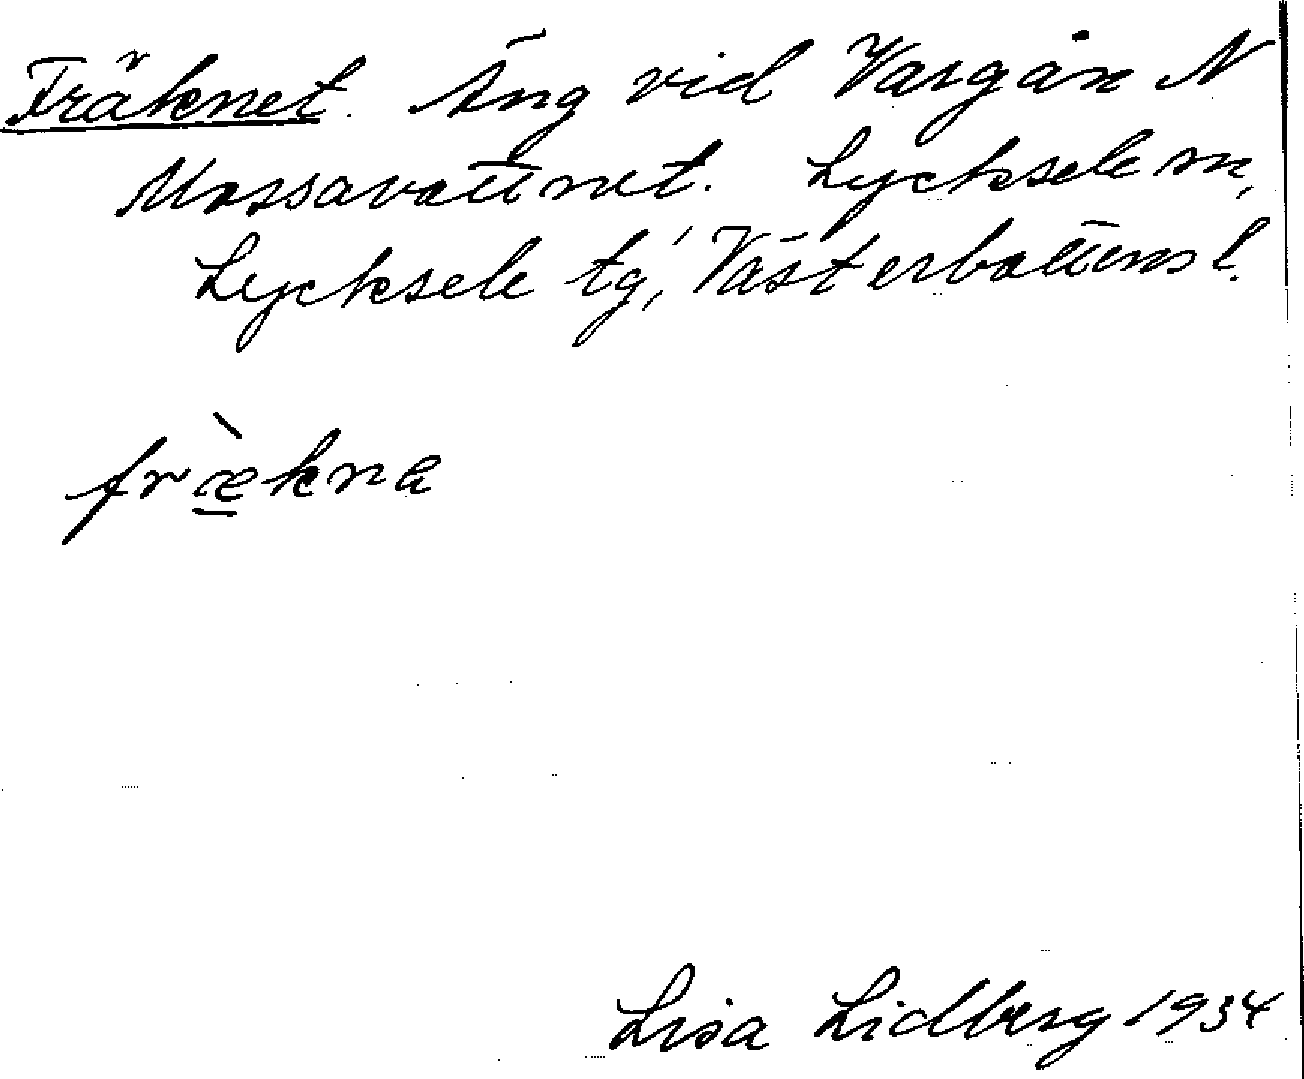 Fräknet. Äng vid Vargån N
Mossavattnet. Lycksele sn,
Lycksele tg, Västerbottens l.
fræ̲̀kna
Lisa Lidberg 1934